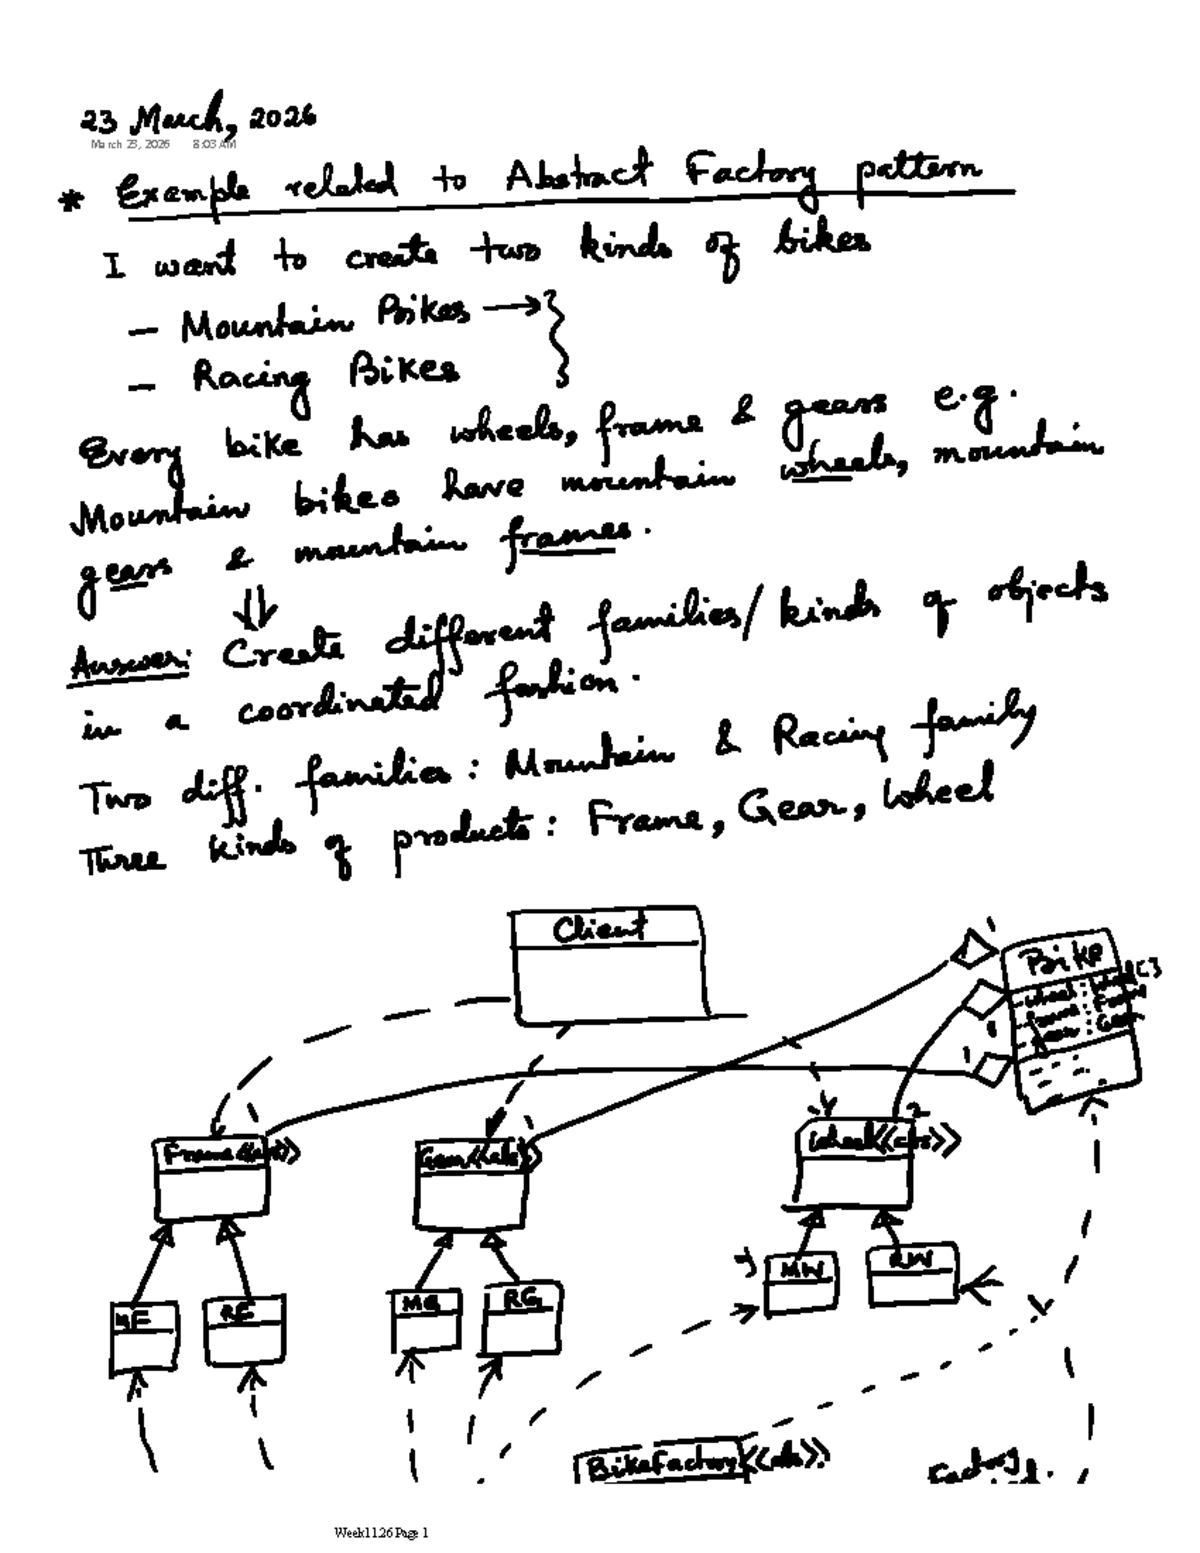 23 March, 2026
March 23, 2026 8:03 AM
* Example related to Abstract Factory pattern
I want to create two kinds of bikes
— Mountain Bikes →
— Racing Bikes
Every bike has wheels, frame & gears e.g.
Mountain bikes have mountain wheels, mountain
gears & mountain frames.
Answer: Create different families/kinds of objects
in a coordinated fashion.
Two diff. families: Mountain & Racing family
Three kinds of products: Frame, Gear, Wheel
Client
1
Bike
wheel : Wheel[]
frame : Frame
gear : Gear
1
1
2
Frame
Gear <<abs>>
Wheel <<abs>>
MF
RF
MG
RG
MW
RW
BikeFactory <<abs>>
Factory
Week11.26 Page 1